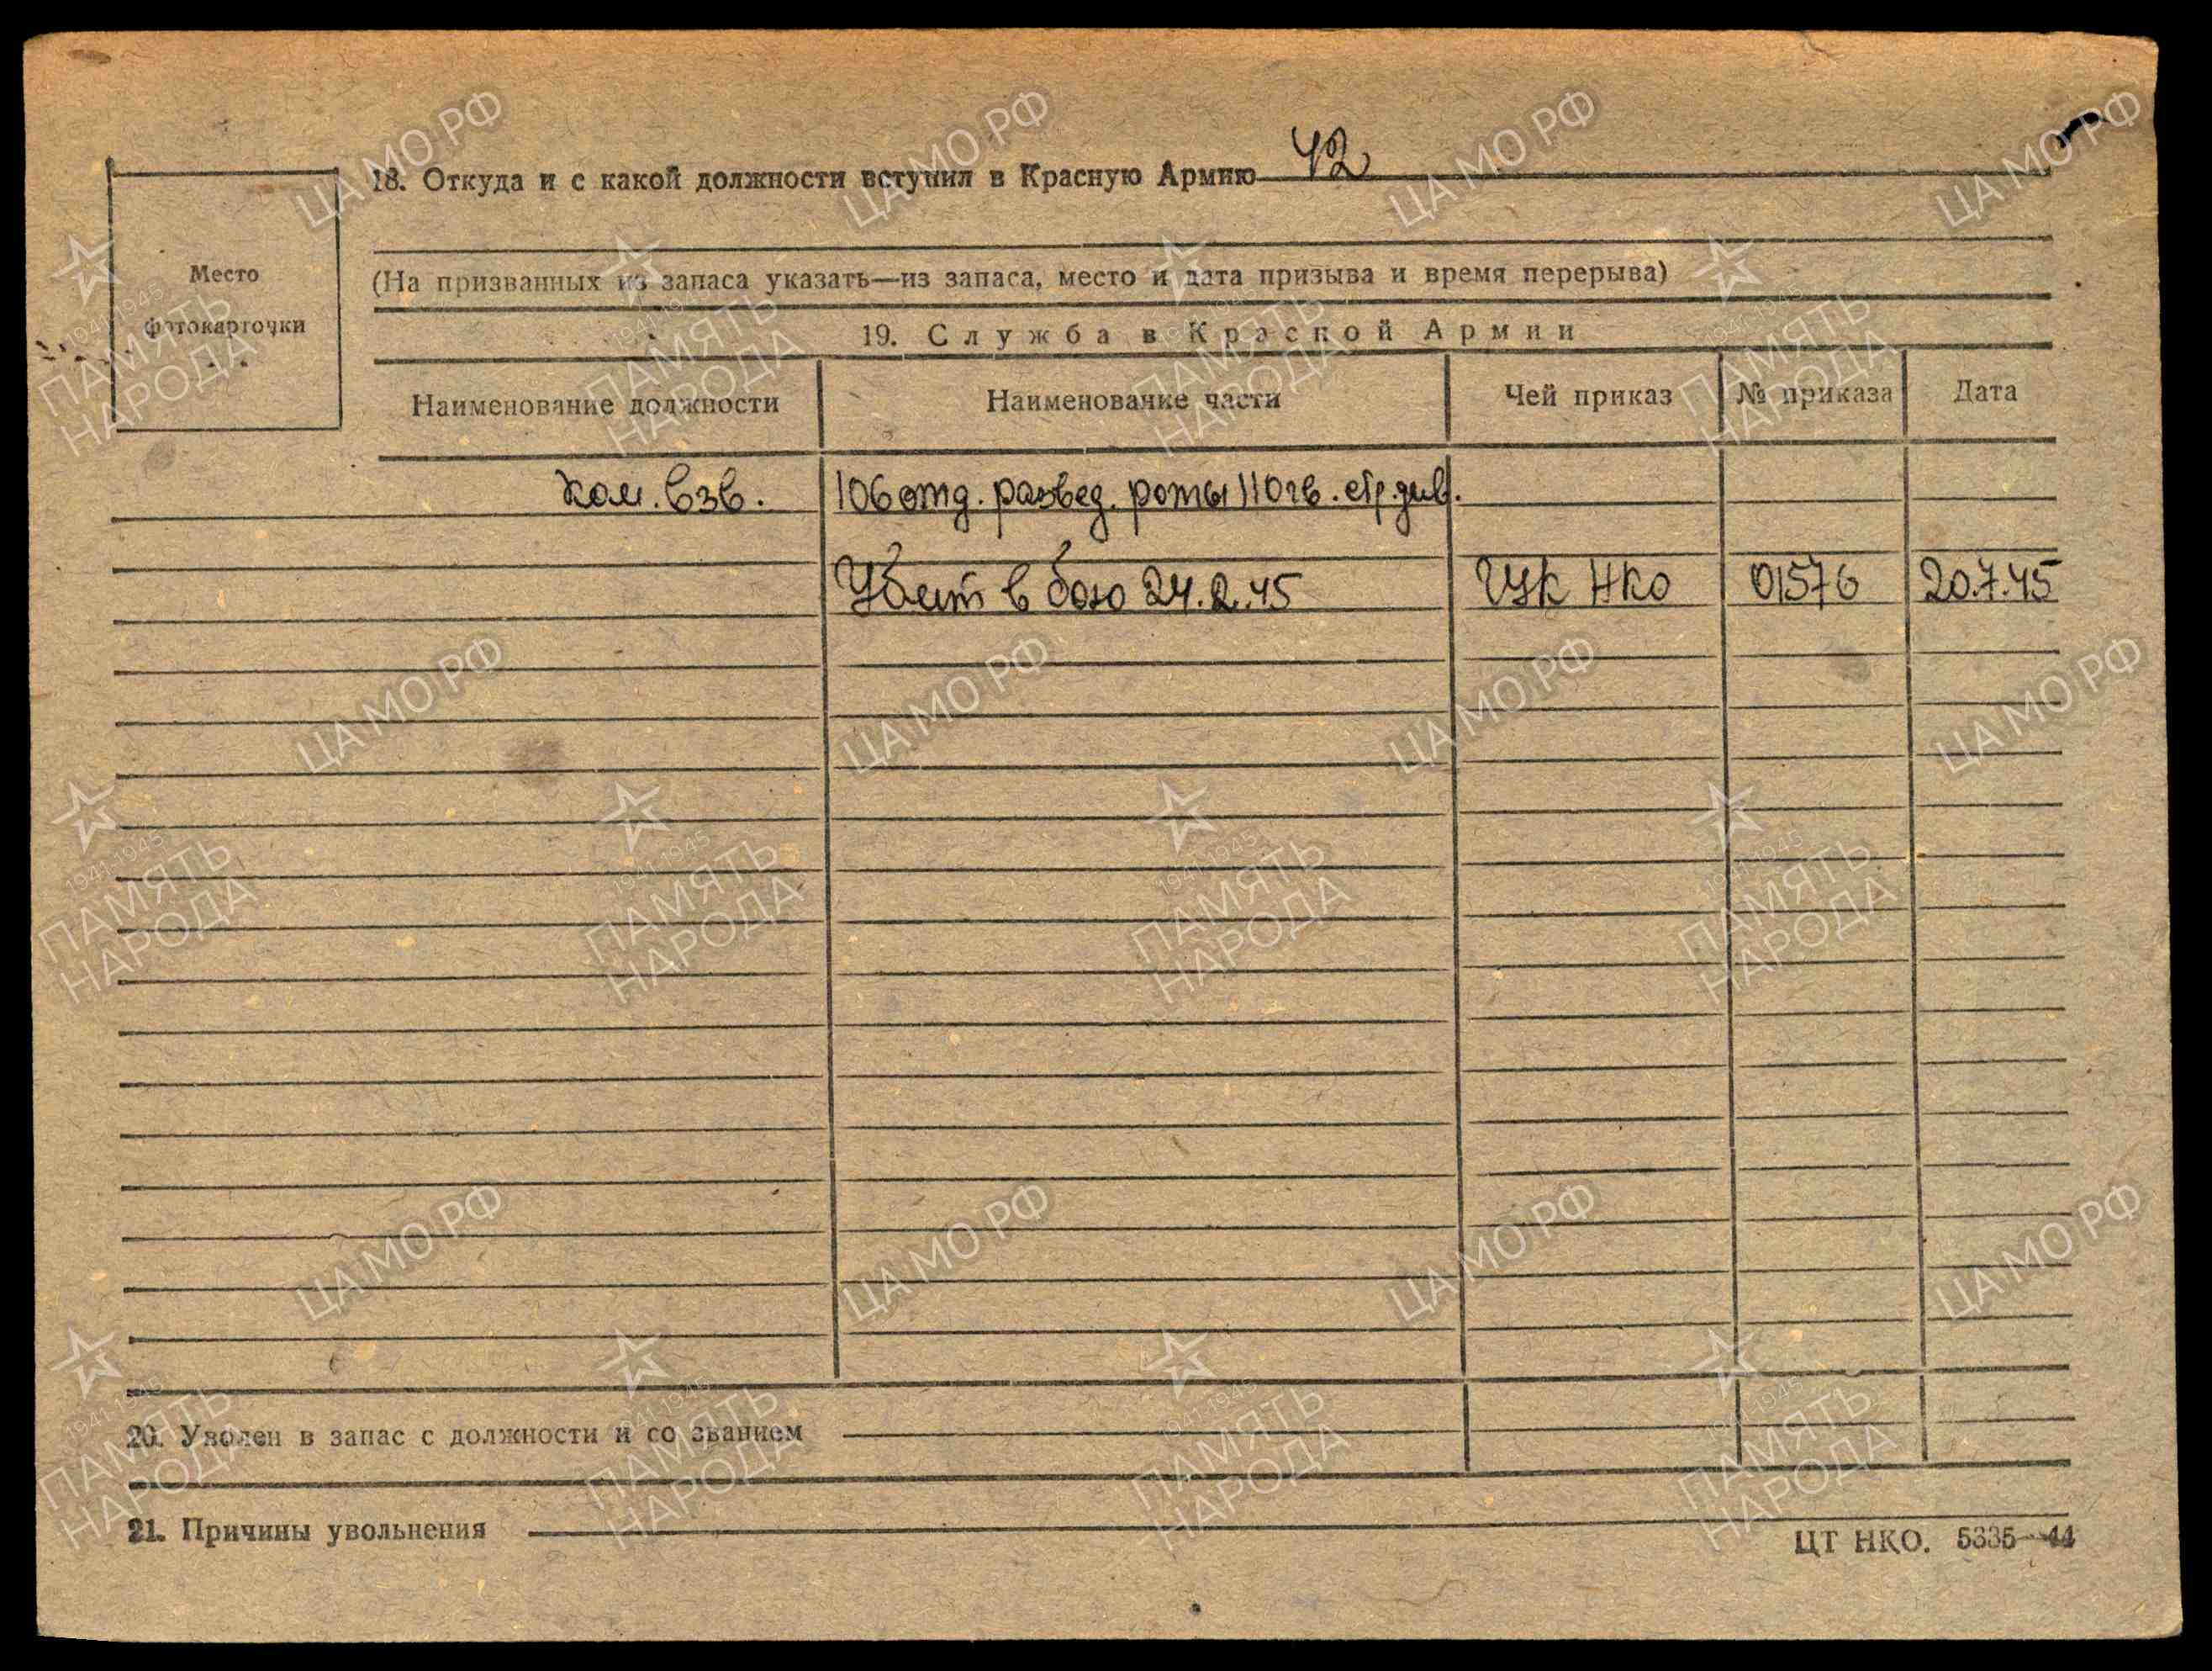 18. Откуда и с какой должности вступил в Красную Армию 42
(На призванных из запаса указать—из запаса, место и дата призыва и время перерыва)
Место
фотокарточки
19. Служба в Красной Армии
Наименование должности Наименование части Чей приказ № приказа Дата
ком. взв. 106 отд. развед. роты 110 гв. стр. див.
Убит в бою 24.2.45 ГУК НКО 01576 20.7.45
20. Уволен в запас с должности и со званием
21. Причины увольнения
ЦТ НКО. 5335—44
ЦА МО РФ
1941-1945
ПАМЯТЬ
НАРОДА